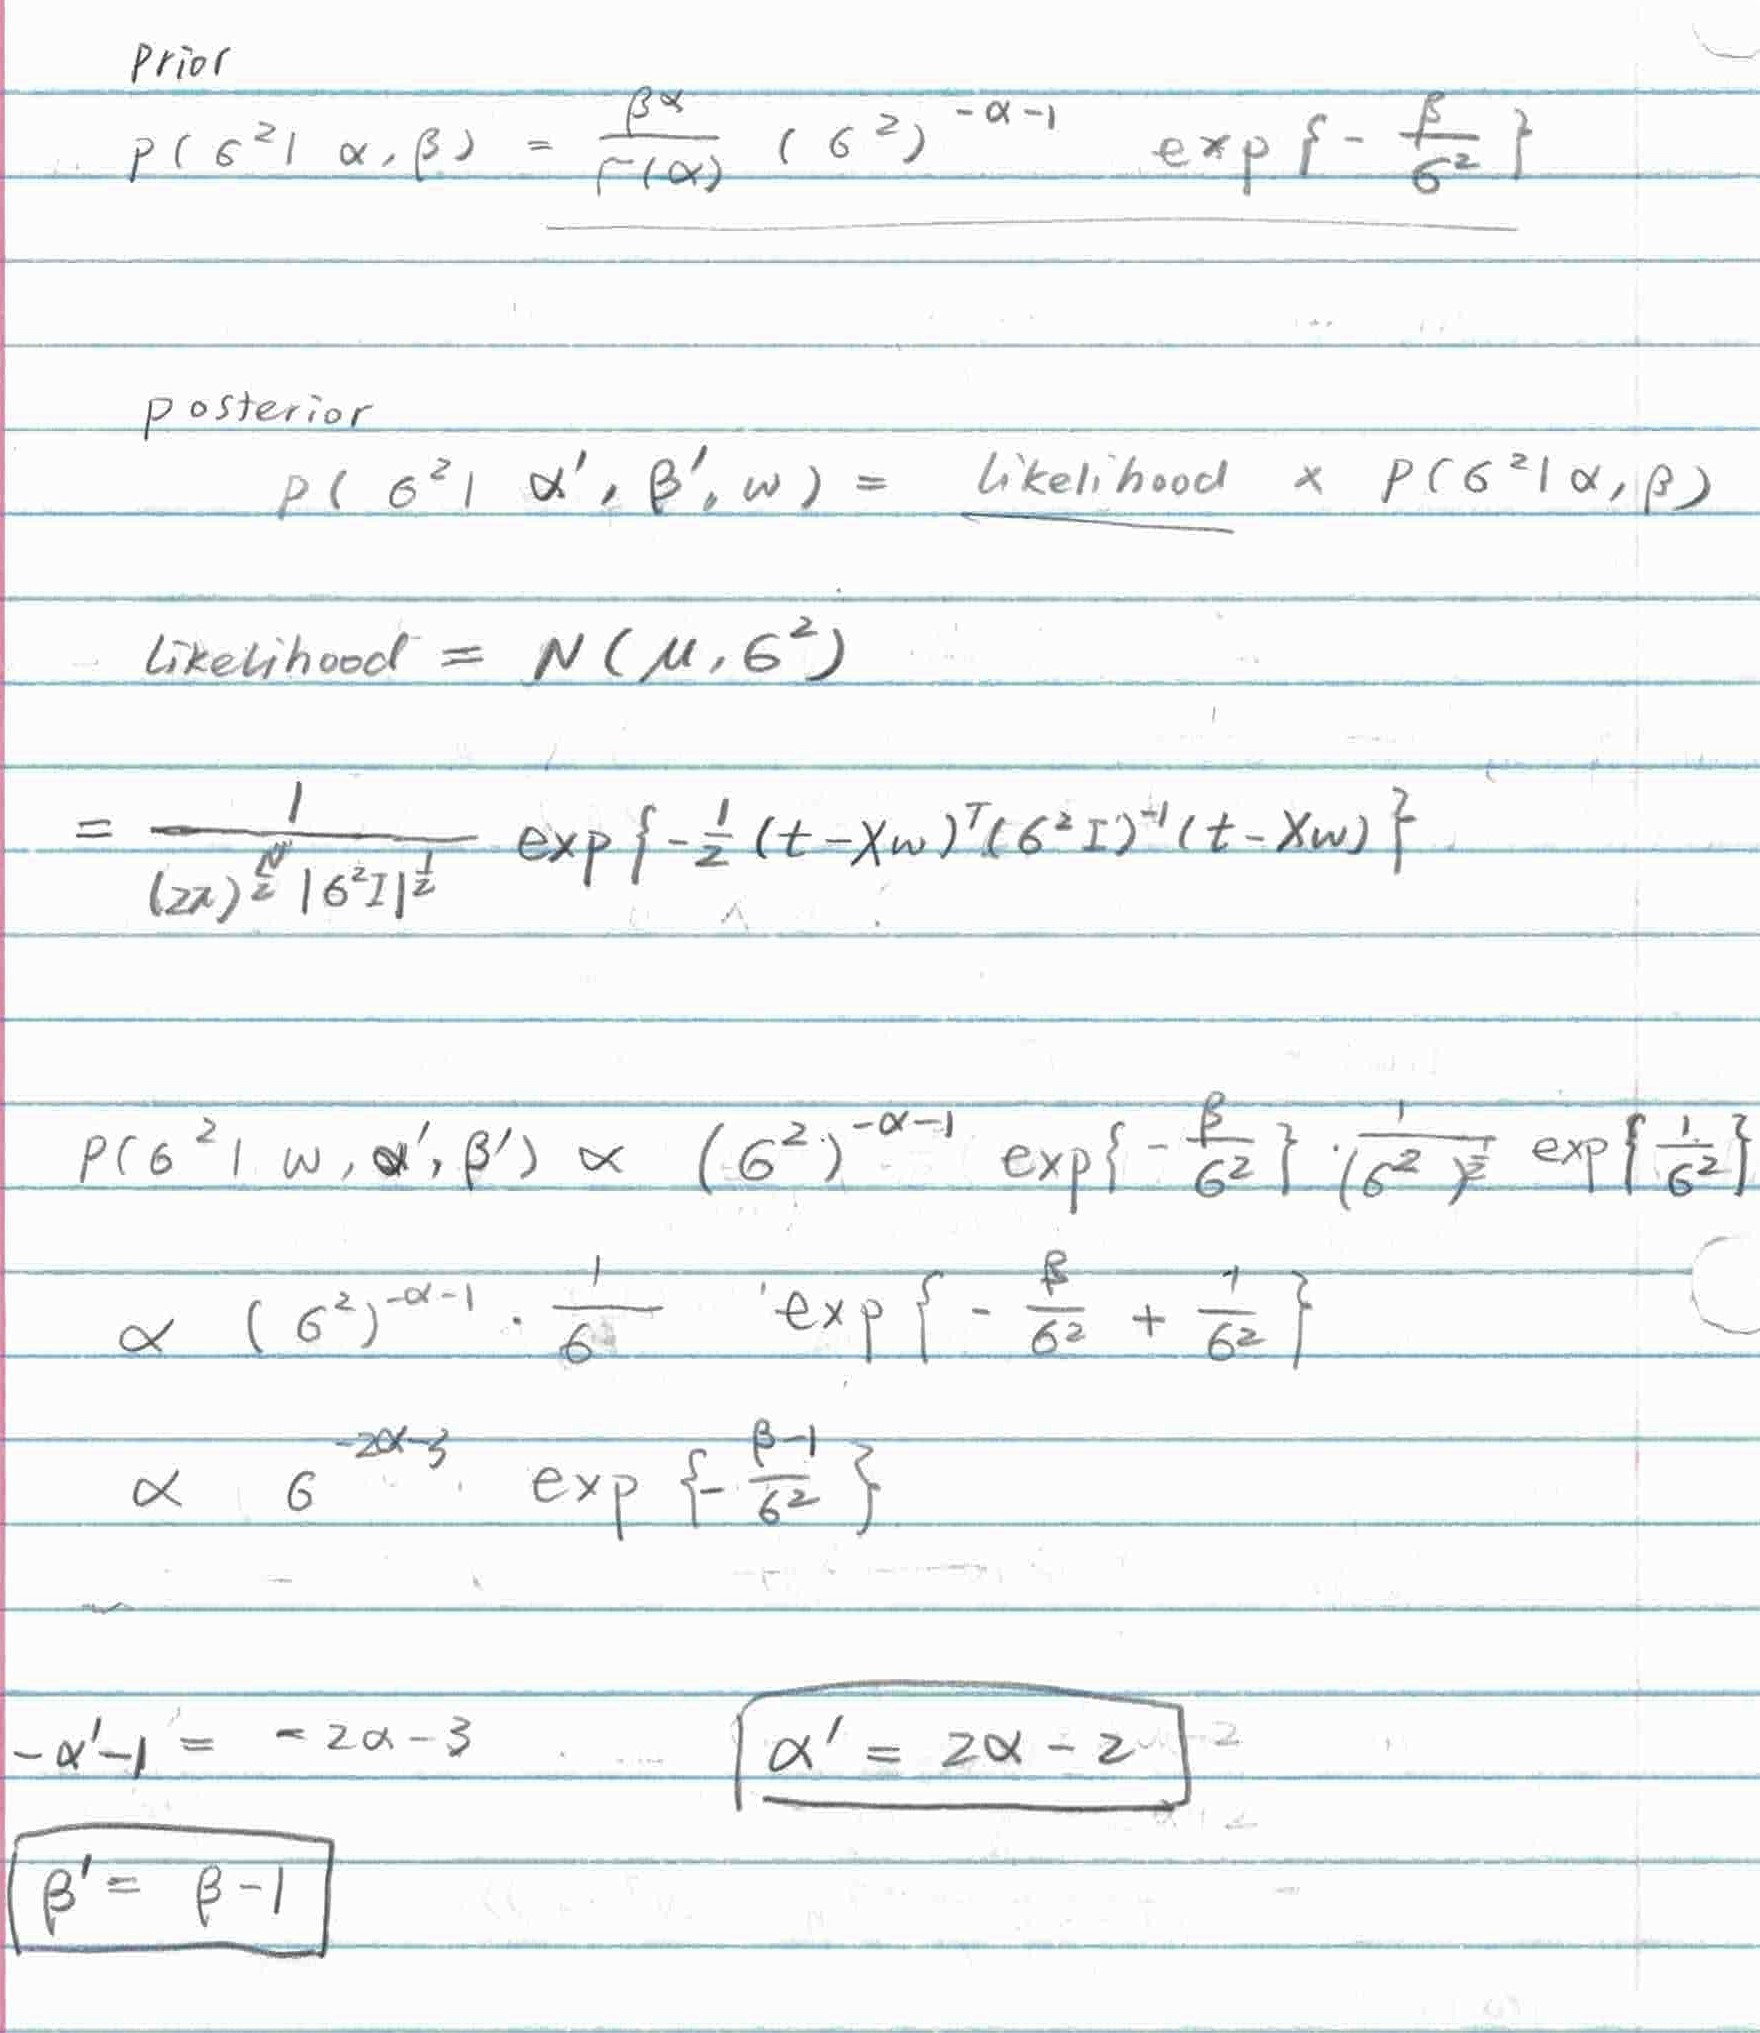 Prior
P(σ²| α, β) = β^α / Γ(α) (σ²)^{-α-1} exp{- β/σ²}
posterior
P(σ²| α', β', w) = likelihood × P(σ²|α, β)
likelihood = N(μ, σ²)
= 1 / ((2π)^{N/2} |σ²I|^{1/2}) exp{-1/2 (t-Xw)^T (σ²I)^{-1} (t-Xw)}
P(σ²| w, α', β') ∝ (σ²)^{-α-1} exp{- β/σ²} · 1/(σ²)^{1/2} exp{1/σ²}
∝ (σ²)^{-α-1} · 1/σ exp{- β/σ² + 1/σ²}
∝ σ^{-2α-3} exp{- (β-1)/σ²}
-α'-1 = -2α-3 α' = 2α-2
β' = β-1